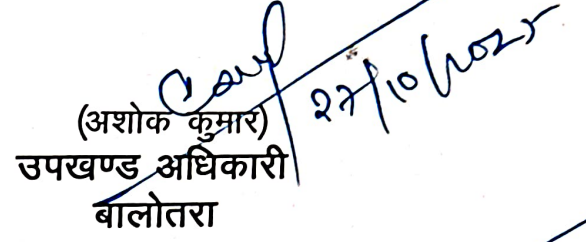 27/10/2025
(अशोक कुमार)
उपखण्ड अधिकारी
बालोतरा